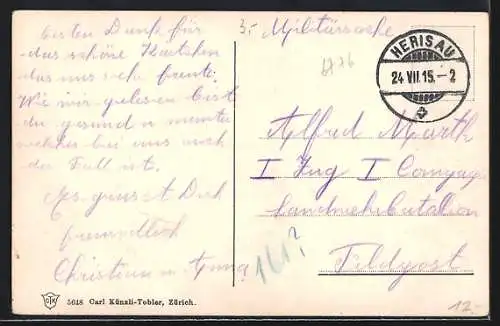 besten Dank für
das schöne Kärtchen
das uns sehr freute.
Wie wir gelesen bist
du gesund u munter
welches bei uns auch
der Fall ist.
Es grüsst Dich
freundlich
Christian u. Anna
3.- Militärsache
HERISAU
24 VII 15.-2
Alfred
I Zug I Compag
Landwehrbatallion
161?
Feldpost
CKT
5648 Carl Künzli-Tobler, Zürich.
12.-